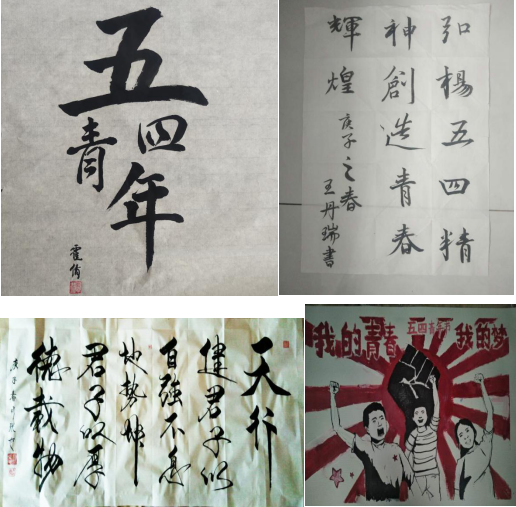 五
四
青
年
弘楊五四精
神創造青春
輝煌
庚子之春
王丹瑞書
天行
健君子以
自強不息
地勢坤
君子以厚
德載物
庚子春月
我的青春 五四青年节 我的梦